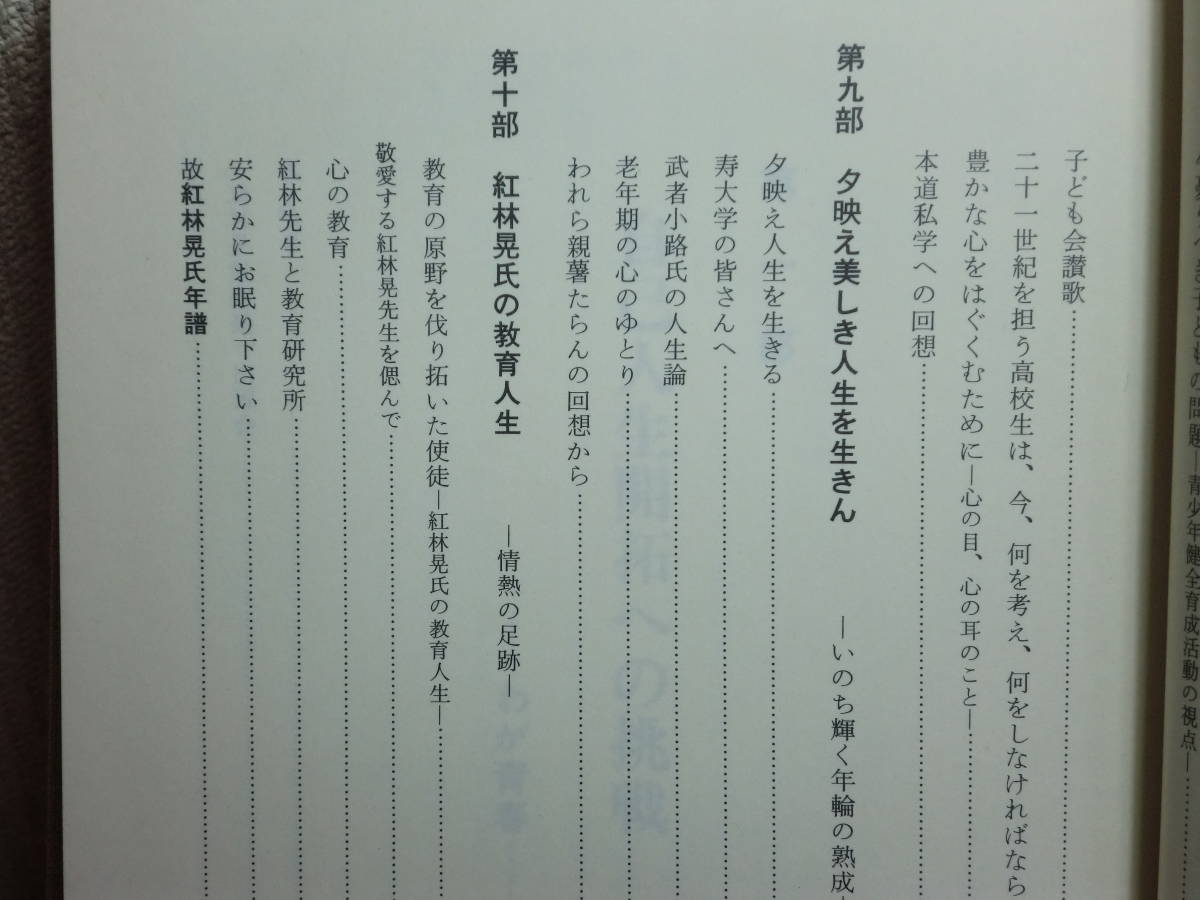 の問題―青少年健全育成活動の視点―…
子ども会讃歌…
二十一世紀を担う高校生は、今、何を考え、何をしなければなら
豊かな心をはぐくむために―心の目、心の耳のこと―…
本道私学への回想…
第九部　夕映え美しき人生を生きん　―いのち輝く年輪の熟成―
夕映え人生を生きる…
寿大学の皆さんへ…
武者小路氏の人生論…
老年期の心のゆとり…
われら親薯たらんの回想から…
第十部　紅林晃氏の教育人生　―情熱の足跡―
教育の原野を伐り拓いた使徒―紅林晃氏の教育人生―…
敬愛する紅林晃先生を偲んで…
心の教育…
紅林先生と教育研究所…
安らかにお眠り下さい…
故紅林晃氏年譜…